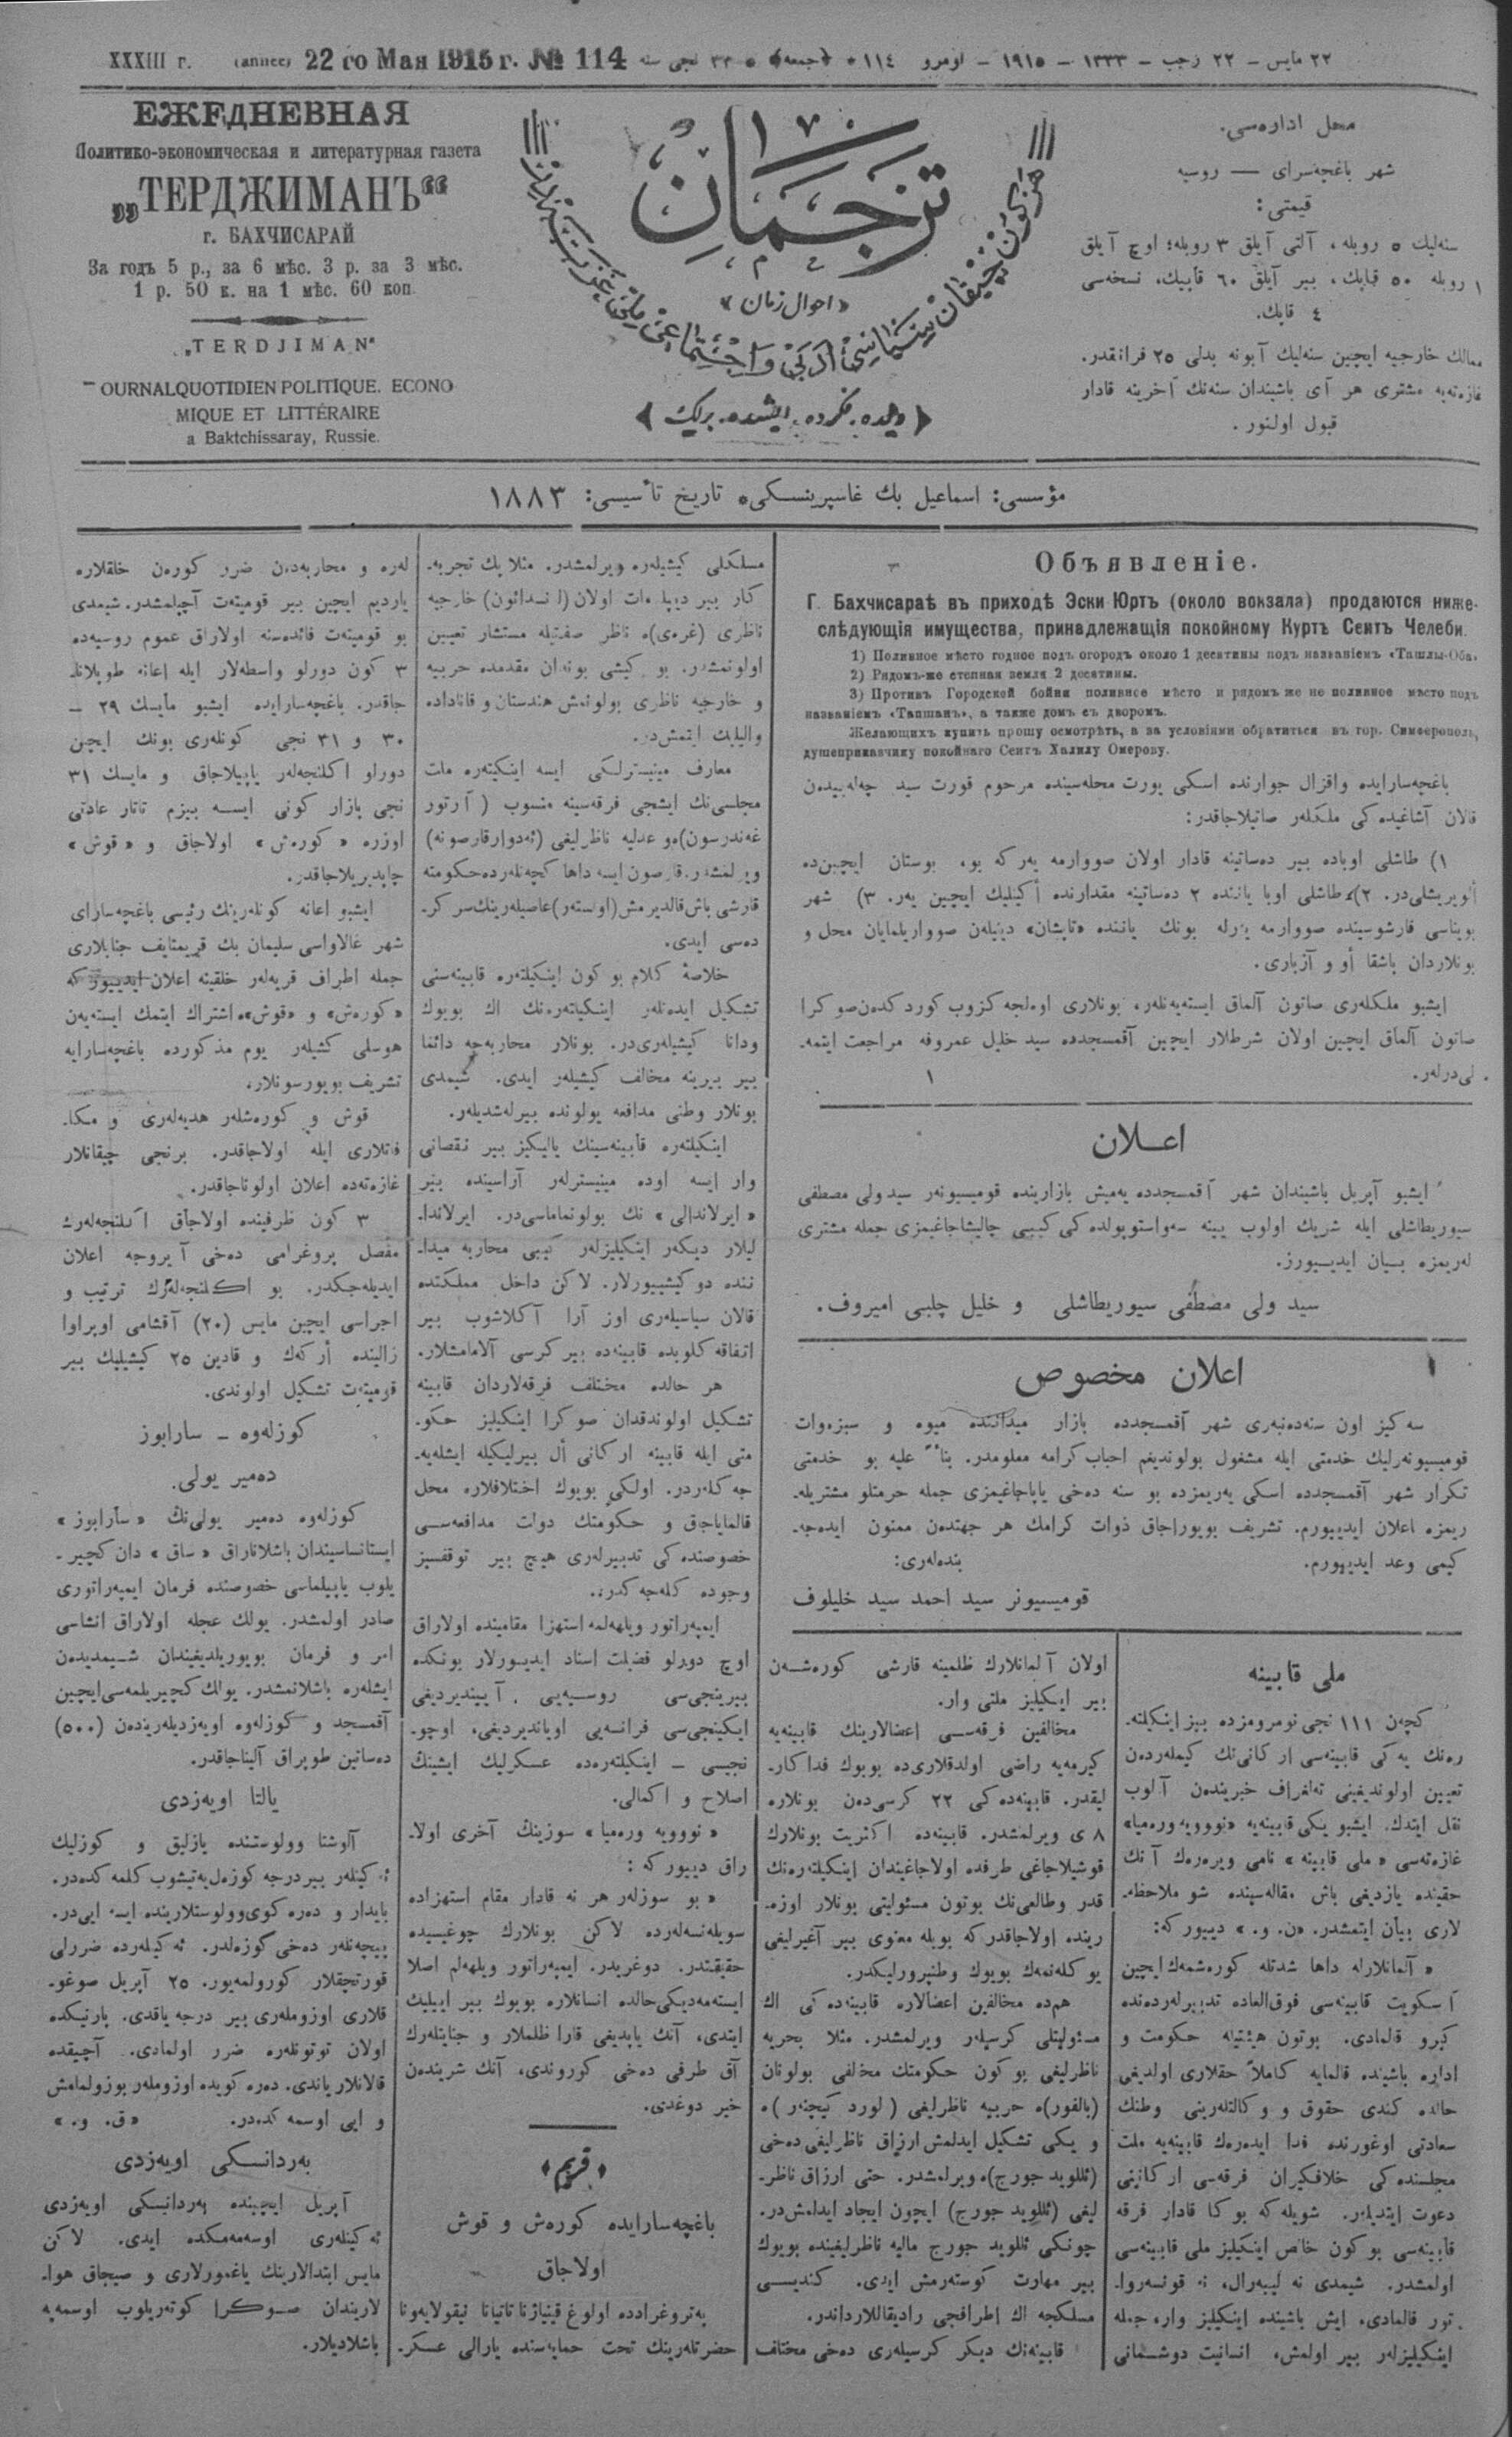 XXXIII г. (annee) 22 го Мая 1915 г. № 114 ٣٣ نجی سنه • ﴿جمعه﴾ • ١١٤ نومرو – ١٩١٥ – ١٣٣٣ – ٢٢ رجب – ٢٢ مایس
ЕЖЕДНЕВНАЯ
Политико-экономическая и литературная газета
„ТЕРДЖИМАНЪ“
г. БАХЧИСАРАЙ
За годъ 5 р., за 6 мѣс. 3 р. за 3 мѣс.
1 р. 50 к. на 1 мѣс. 60 коп.
„TERDJIMAN“
OURNALQUOTIDIEN POLITIQUE. ECONO
MIQUE ET LITTÉRAIRE
a Baktchissaray, Russie.
ترجمان
«احوال زمان»
دیلده، فکرده، ایشده، برلك
محل اداره‌سی.
شهر باغچه‌سرای — روسیه
قیمتی:
سنه‌لیك ٥ روبله، آلتی آیلق ٣ روبله؛ اوچ آیلق
١ روبله ٥٠ قپایك، بیر آیلق ٦٠ قاپیك، نسخه‌سی
٤ قاپك.
ممالك خارجیه ایچین سنه‌لیك آبونه بدلی ٢٥ فرانقدر.
غازه‌ته‌یه مشتری هر آی باشندان سنه‌نك آخرینه قادار
قبول اولنور.
مؤسسی: اسماعیل بك غاسپرینسکی• تاریخ تأسیسی: ١٨٨٣
Объявленіе.
Г. Бахчисараѣ въ приходѣ Эски Юртъ (около вокзала) продаются ниже-
слѣдующія имущества, принадлежащія покойному Куртъ Сеитъ Челеби.
1) Поливное мѣсто годное подъ огородъ около 1 десятины подъ названіемъ «Ташлы-Оба»
2) Рядомъ-же степная земля 2 десятины.
3) Противъ Городской бойни поливное мѣсто и рядомъ же не поливное мѣсто подъ
названіемъ «Тапшанъ», а также домъ съ дворомъ.
Желающихъ купить прошу осмотрѣть, а за условіями обратиться въ гор. Симферополь,
душеприказчику покойнаго Сеитъ Халилу Омерову.
باغچه‌سارایده واقزال جوارنده اسکی یورت محله‌سینده مرحوم قورت سید چه‌له‌بیدن
قالان آشاغیده کی ملکله‌ر صاتیلاجاقدر:
١) طاشلی اوباده بیر ده‌ساتینه قادار اولان صووارمه یه‌ر که بو، بوستان ایچین‌ده
ألویریشلی‌در. ٢) طاشلی اوبا یاننده ٢ ده‌ساتینه مقدارنده أکینلیك ایچین یه‌ر. ٣) شهر
بویناسی قارشوسینده صووارمه یرله بونك یاننده «تاپشان» دینیلن صوواریلمایان محل و
بونلاردان باشقا أو و آزباری.
ایشبو ملکله‌ری صاتون آلماق ایسته‌یه‌نله‌ر، بونلاری اوه‌لجه کزوب کوردکدن صوکرا
صاتون آلماق ایچین اولان شرطلار ایچین آقمسجدده سید خلیل عمروفه مراجعت ایتمه-
لی‌درله‌ر.
اعـلان
ایشبو آپریل باشندان شهر آقمسجدده یه‌میش بازارینده قومیسیونه‌ر سید ولی مصطفی
سیوریطاشلی ایله شریك اولوب یینه سه‌واستوپولده کی کیبی چالیشاجاغیمزی جمله مشتری
له‌ریمزه بیان ایدییورز.
سید ولی مصطفی سیوریطاشلی و خلیل چلبی امیروف.
اعلان مخصوص
سه‌کیز اون سنه‌ده‌نبه‌ری شهر آقمسجدده بازار میداننده میوه و سبزه‌وات
قومیسیونه‌رلیك خدمتی ایله مشغول بولوندیغم احباب کرامه معلومدر. بناءً علیه بو خدمتی
تکرار شهر آقمسجدده اسکی یه‌ریمزده بو سنه ده‌خی یاپاجاغیمزی جمله حرمتلو مشتریله-
ریمزه اعلان ایدییورم. تشریف بویوراجاق ذوات کرامك هر جهتدن ممنون ایده‌جه-
کیمی وعد ایدییورم. بنده‌له‌ری:
قومیسیونر سید احمد سید خلیلوف
ملی قابینه
کچه‌ن ١١١ نجی نومرومزده بیز اینکیلته-
ره‌نك یه‌کی قابینه‌سی ارکانی‌نك کیمله‌ردن
تعیین اولوندیغینی ته‌لغراف خبریندن آلوب
نقل ایتدك. ایشبو یکی قابینه‌یه «نووویه وره‌میا»
غازه‌ته‌سی «ملی قابینه» نامی ویره‌رك آنك
حقینده یازدیغی باش مقاله‌سینده شو ملاحظه-
لاری بیان ایتمشدر. «ن. و.» دییور که:
« آلمانلارله داها شدتله کوره‌شمه‌ك ایچین
آسکویت قابینه‌سی فوق‌العاده تدبیرله‌رده‌نده
کیرو قالمادی. بوتون هیئتیله حکومت و
اداره باشینده قالمایه کاملاً حقلاری اولدیغی
حالده کندی حقوق و وکالتله‌رینی وطنك
سعادتی اوغورنده فدا ایده‌ره‌ك قابینه‌یه ملت
مجلسنده کی خلافکیران فرقه‌سی ارکانینی
دعوت ایتدیلر. شویله که بو کا قادار فرقه
قابینه‌سی بو کون خاص اینکیلیز ملی قابینه‌سی
اولمشدر. شیمدی نه لیبه‌رال، نه قونسه‌روا-
تور قالمادی، ایش باشینده اینکیلیز وار، جمله
اینکیلیزله‌ر بیر اولمش، انسانیت دوشمانی
اولان آلمانلارك ظلمینه قارشی کوره‌شه‌ن
بیر اینکیلیز ملتی وار.
مخالفین فرقه‌سی اعضالارینك قابینه‌یه
کیرمه‌یه راضی اولدقلاری‌ده بویوك فداکار-
لیقدر. قابینه‌ده کی ٢٢ کرسی‌دن بونلاره
٨ ی ویرلمشدر. قابینه‌ده اکثریت بونلارك
قوشیلاجاغی طرفده اولاجاغیندان اینکیلته‌ره‌نك
قدر وطالعی‌نك بوتون مسئولیتی بونلار اوزه-
رینده اولاجاقدر که بویله معنوی بیر آغیرلیغی
یوکله‌نمه‌ك بویوك وطنپرورلیکدر.
هم‌ده مخالفین اعضالاره قابینه‌ده کی اك
مسئولیتلی کرسیله‌ر ویرلمشدر. مثلا بحریه
ناظرلیغی بو کون حکومتك مخالفی بولونان
(بالفور)ه حربیه ناظرلیغی (لورد کیچنه‌ر)ه
و یکی تشکیل ایدلمش ارزاق ناظرلیغی ده‌خی
(ئللوید جورج)ه ویرلمشدر. حتی ارزاق ناظر-
لیغی (ئللوید جورج) ایچون ایجاد ایدلمش‌در.
چونکی ئللوید جورج مالیه ناظرلیغینده بویوك
بیر مهارت کوسته‌رمش ایدی. کندیسی
مسلکجه اك افراطجی رادیقاللارداندر.
قابینه‌نك دیکر کرسیله‌ری ده‌خی مختلف
مسلکلی کیشیله‌ره ویرلمشدر. مثلا بك تجربه-
کار بیر دیپلومات اولان (لانسدائون) خارجیه
ناظری (غره‌ی)ه ناظر صفتیله مستشار تعیین
اولونمشدر. بو کیشی بوندان مقدمده حربیه
و خارجیه ناظری بولونمش هندستان و قاناداده
والیلیك ایتمش‌در.
معارف مینیسترلکی ایسه اینکیلته‌ره ملت
مجلسی‌نك ایشجی فرقه‌سینه منسوب (آرتور
غه‌ندرسون)ه‌و عدلیه ناظرلیغی (ئه‌دوارقارصونه)
ویرلمشدر. قارصون ایسه داها کچه‌نله‌رده حکومته
قارشی باش قالدیرمش (اولستر) عاصیله‌رینك سرکر-
ده‌سی ایدی.
خلاصهٔ کلام بو کون اینکیلته‌ره قابینه‌سنی
تشکیل ایده‌نله‌ر اینکیلته‌ره‌نك اك بویوك
ودانا کیشیله‌ری‌در. بونلار محاربه‌یه دائما
بیر بیرینه مخالف کیشیله‌ر ایدی. شیمدی
بونلار وطنی مدافعه یولونده بیرله‌شدیله‌ر.
اینکیلته‌ره قابینه‌سینك یالیکیز بیر نقصانی
وار ایسه اوده مینیسترله‌ر آراسینده بیر
«ایرلاندالی» نك بولونماماسی‌در. ایرلاندا-
لیلار دیکه‌ر اینکیلیزله‌ر کیبی محاربه میدا-
ننده دوکیشییورلار. لاکن داخل مملکتده
قالان سیاسیله‌ری اوز آرا آکلاشوب بیر
اتفاقه کلوبده قابینه‌ده بیر کرسی آلامامشلار.
هر حالده مختلف فرقه‌لاردان قابینه
تشکیل اولوندقدان صوکرا اینکیلیز حکو-
متی ایله قابینه ارکانی أل بیرلیکیله ایشله‌یه-
جه‌کله‌ردر. اولکی بویوك اختلافلاره محل
قالمایاجاق و حکومتك دولت مدافعه‌سی
خصوصنده کی تدبیرله‌ری هیچ بیر توقفسیز
وجوده کله‌جه‌کدر.
ایمپه‌راتور ویلهه‌لمه استهزا مقامینده اولاراق
اوچ دورلو فضیلت اسناد ایدییورلار بونکده
بیرینجی‌سی روسیه‌یی آییندیردیغی
ایکینجی‌سی فرانسه‌یی اویاندیردیغی، اوچو-
نجیسی – اینکیلته‌ره‌ده عسکرلیك ایشینك
اصلاح و اکمالی.
«نووویه وره‌میا» سوزینك آخری اولا-
راق دییور که:
« بو سوزله‌ر هر نه قادار مقام استهزاده
سویله‌نسه‌له‌رده لاکن بونلارك چوغیسیده
حقیقتدر. دوغریدر. ایمپه‌راتور ویلهه‌لم اصلا
ایسته‌مه‌دیکی حالده انسانلاره بویوك بیر ایییلیك
ایتدی، آنك یاپدیغی قارا ظلملار و جنایتله‌رك
آق طرفی ده‌خی کوروندی، آنك شریندن
خیر دوغدی.
﴿قریم﴾
باغچه‌سارایده کوره‌ش و قوش
اولاجاق
په‌تروغرادده اولوغ قینیازنا تاتیانا نیقولایه‌ونا
حضرتله‌رینك تحت حمایه‌سنده یارالی عسکر-
له‌ره و محاربه‌ده‌ن ضرر کوره‌ن خلقلاره
یاردیم ایچین بیر قومیته‌ت آچیلمشدر. شیمدی
بو قومیته‌ت فائده‌سنه اولاراق عموم روسیه‌ده
٣ کون دورلو واسطه‌لار ایله اعانه طوپلانا-
جاقدر. باغچه‌سارایده ایشبو مایسك ٢٩ –
٣٠ و ٣١ نجی کونله‌ری بونك ایچین
دورلو اکلنجه‌له‌ر یاپیلاجاق و مایسك ٣١
نجی بازار کونی ایسه بیزم تاتار عادتی
اوزره «کوره‌ش» اولاجاق و «قوش»
چاپدیریلاجاقدر.
ایشبو اعانه کونله‌رینك رئیسی باغچه‌سارای
شهر غالاواسی سلیمان بك قریمتایف جنابلاری
جمله اطراف قریه‌له‌ر خلقینه اعلان ایدییور که
«کوره‌ش» و «قوش»ه اشتراك ایتمك ایسته‌یه‌ن
هوسلی کشیله‌ر یوم مذکورده باغچه‌سارایه
تشریف بویورسونلار.
قوش و کوره‌شله‌ر هدیه‌له‌ری و مکا-
فاتلاری ایله اولاجاقدر. برنجی چیقانلار
غازه‌ته‌ده اعلان اولوناجاقدر.
٣ کون ظرفینده اولاجاق اکلنجه‌له‌رك
مفصل پروغرامی ده‌خی آیروجه اعلان
ایدیله‌جکدر. بو اکلنجه‌له‌رك ترتیب و
اجراسی ایچین مایس (٢٠) آقشامی اوپراوا
زالینده أرکه‌ك و قادین ٢٥ کیشیلیك بیر
قومیته‌ت تشکیل اولوندی.
کوزله‌وه – سارابوز
ده‌میر یولی.
کوزله‌وه ده‌میر یولی‌نك «سارابوز»
ایستانساسیندان باشلاناراق «ساق» دان کچیر-
یلوب یاپیلماسی خصوصنده فرمان ایمپه‌راتوری
صادر اولمشدر. یولك عجله اولاراق انشاسی
امر و فرمان بویوریلدیغیندان شیمدیدن
ایشله‌ره باشلانمشدر. یولك کچیریلمه‌سی ایچین
آقمسجد و کوزله‌وه اویه‌زدیله‌ریندن (٥٠٠)
ده‌ساتین طوپراق آلیناجاقدر.
یالتا اویه‌زدی
آلوشتا وولوستنده یازلیق و کوزلیك
ئه‌کینله‌ر بیر درجه کوزه‌ل یه‌تیشوب کلمه‌کده‌در.
بایدار و ده‌ره کوی‌وولوستلارینده ایسه ایی‌در.
بیچه‌نله‌ر ده‌خی کوزه‌لدر. ئه‌کینله‌رده ضررلی
قورتجقلار کورولمه‌یور. ٢٥ آپریل صوغو-
قلاری اوزومله‌ری بیر درجه یاقدی. پارنیکده
اولان توتونله‌ره ضرر اولمادی. آچیقده
قالانلار یاندی. ده‌ره کویده اوزومله‌ر بوزولمامش
و ایی اوسمه‌کده‌در. «ق. و.»
به‌ردانسکی اویه‌زدی
آپریل ایچینده به‌ردانسکی اویه‌زدی
ئه‌کینله‌ری اوسه‌مه‌مکده ایدی. لاکن
مایس ابتدالارینك یاغمورلاری و صیجاق هوا-
لاریندان صوکرا کوته‌ریلوب اوسمه‌یه
باشلادیلار.